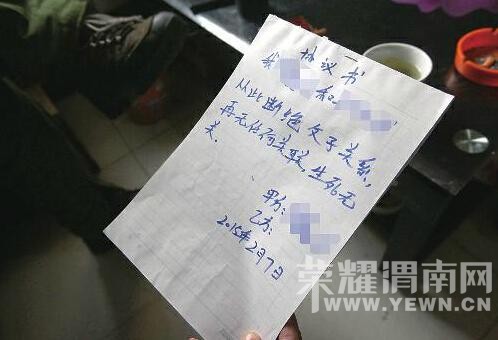 协议书
我 和
从此断绝父子关系,
再无任何关联,生死无
关.
甲方:
乙方:
2015年2月7日
荣耀渭南网
WWW.YEWN.CN